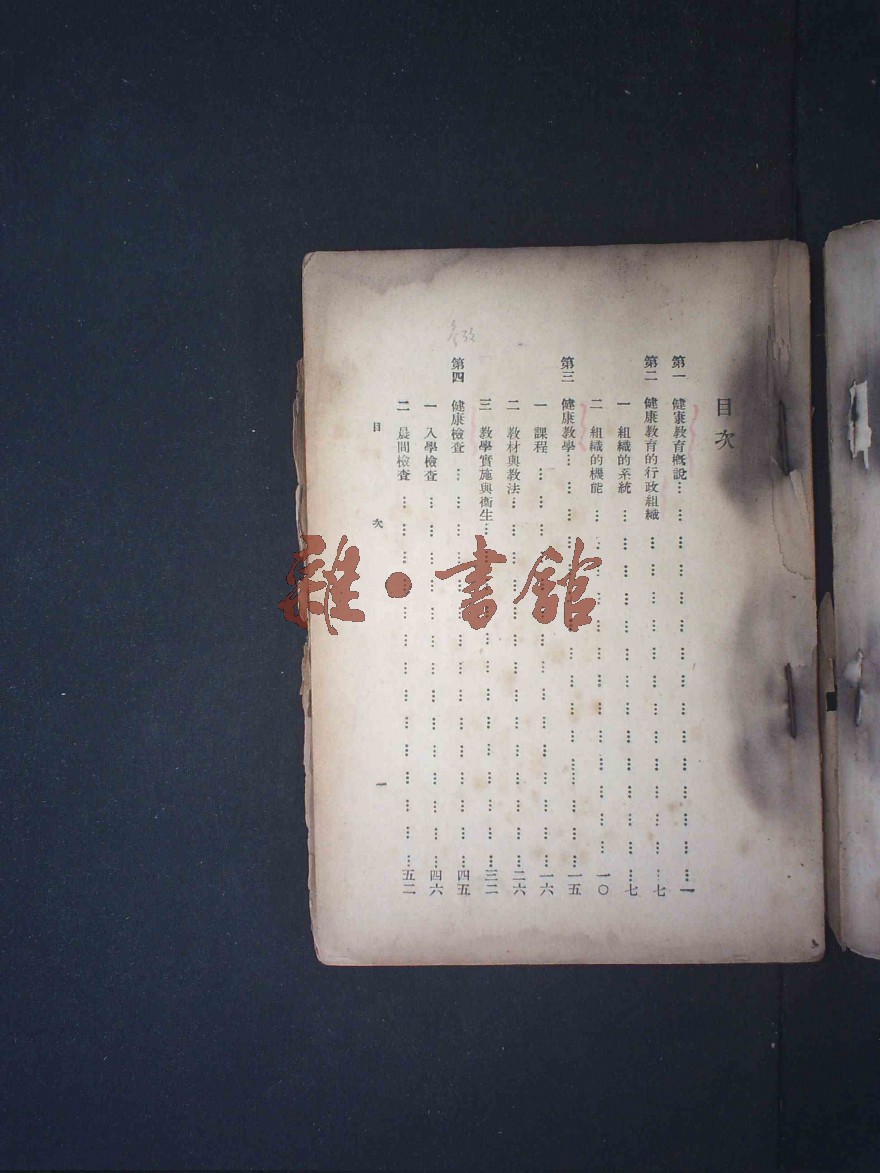 目次
第一 健康教育概說…………一
第二 健康教育的行政組織…………七
一 組織的系統…………七
二 組織的機能…………一〇
第三 健康教學…………一五
一 課程…………一六
二 教材與教法…………二六
三 教學實施與衞生…………三二
第四 健康檢查…………四五
一 入學檢查…………四六
二 晨間檢查…………五二
目次 一
雜·書館